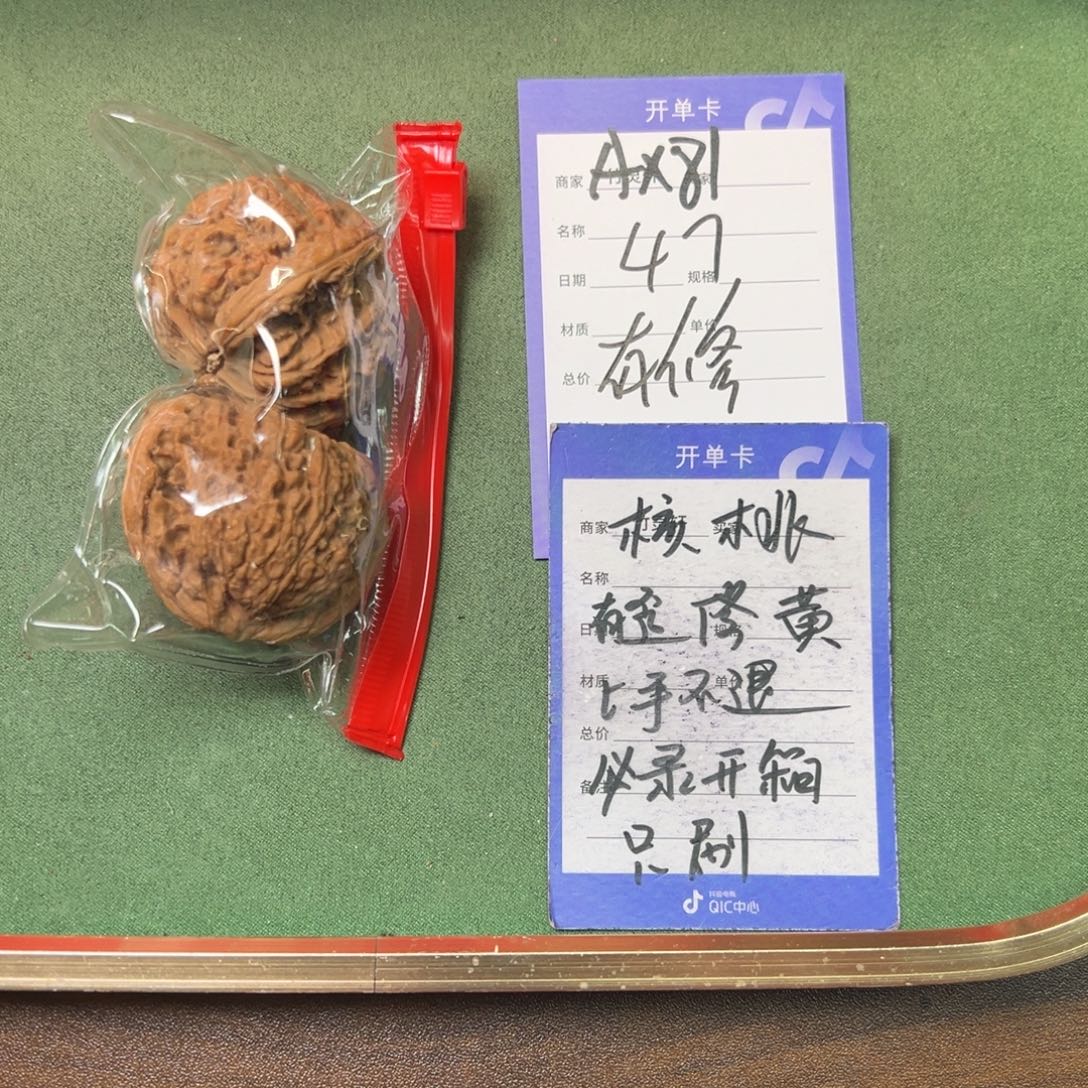 开单卡
商家 AX81 家
名称
47
日期 规格
材质 单价
有修
总价
开单卡
商家 核桃
名称
有歪修黄
材质 单价
上手不退
总价
备注 必录开箱
只刷
抖音电商
QIC中心